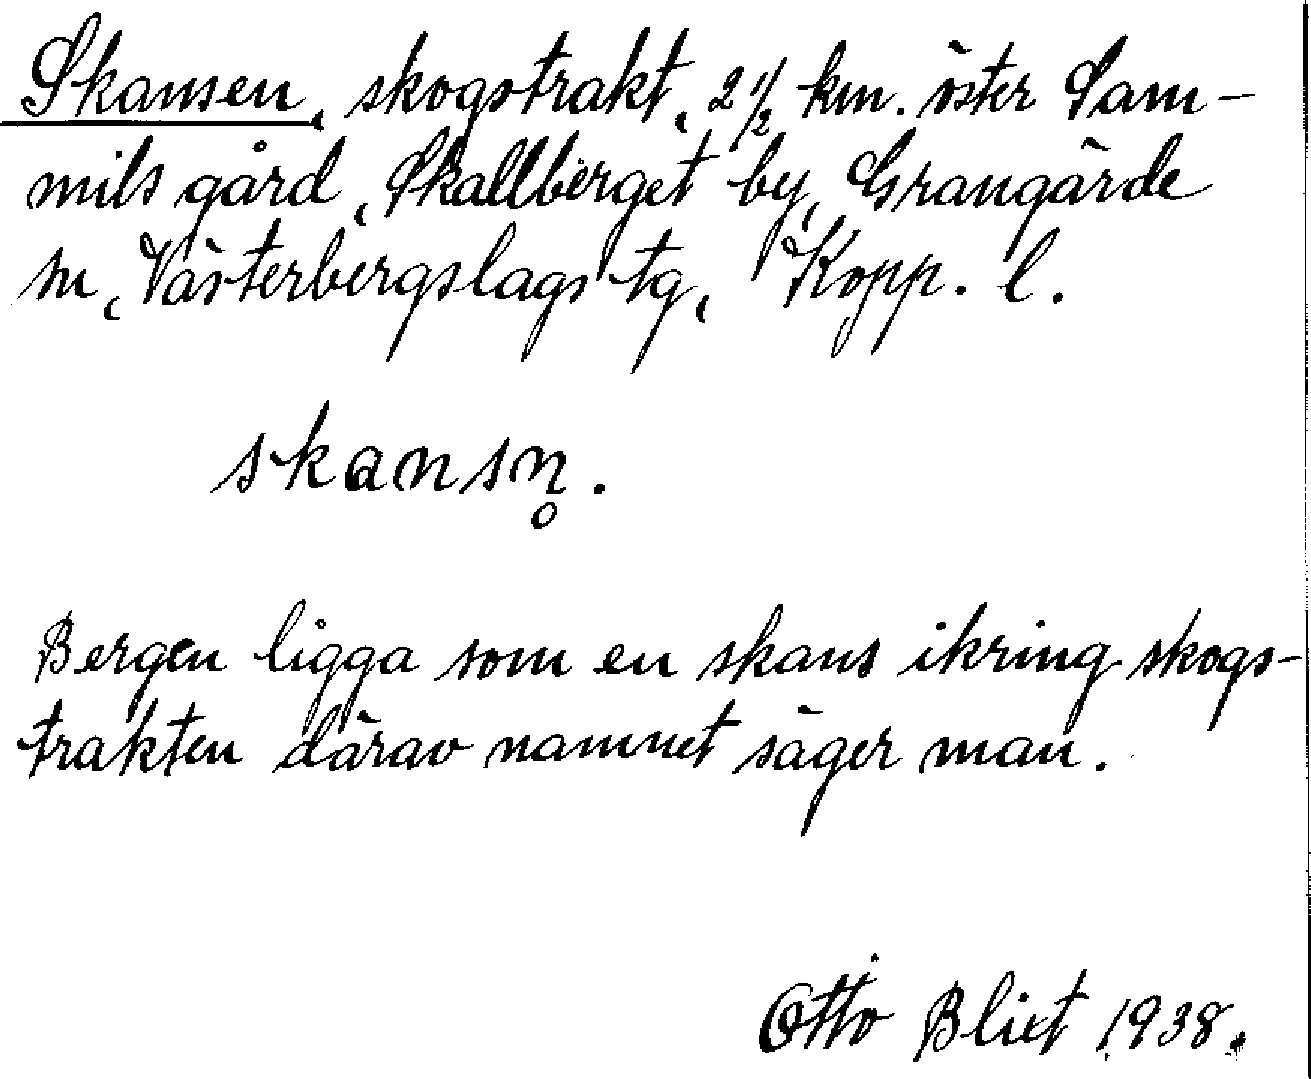 Skansen, skogstrakt, 2 1/2 km. öster Sam-
mils gård, Skallberget by, Grangärde
sn, Västerbergslags tg, Kopp. l.
skansn̥.
Bergen ligga som en skans ikring skogs-
trakten därav namnet säger man.
Otto Blixt 1938.